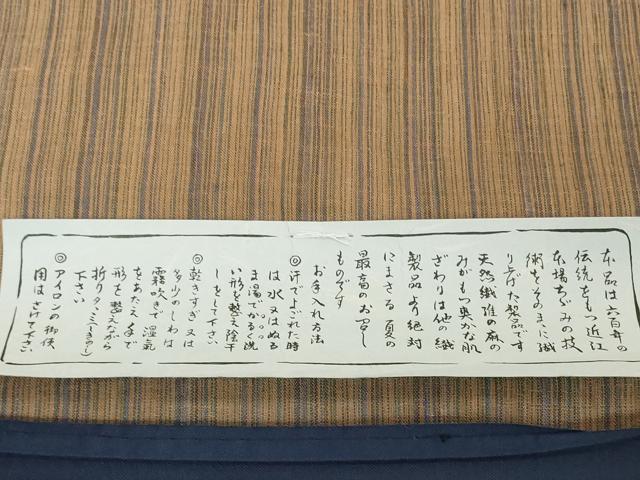 本品は六百年の
伝統をもつ近江
本場ちぢみの技
術をそのまゝに織
り上げた製品です
天然繊維の麻の
みがもつ奥かな肌
ざわりは他の繊
製品より絶対
にまさる夏の
最高のお召し
ものです
お手入れ方法
◎汗でよごれた時
は水又はぬる
ま湯でかるく洗
い形を整え陰干
しをして下さい
◎乾きすぎ又は
多少のしわは
霧吹きで湿気
をあたえ手で
形を整えながら
折りタヽミ(しきのし)
下さい
◎アイロンの御使
用はさけて下さい